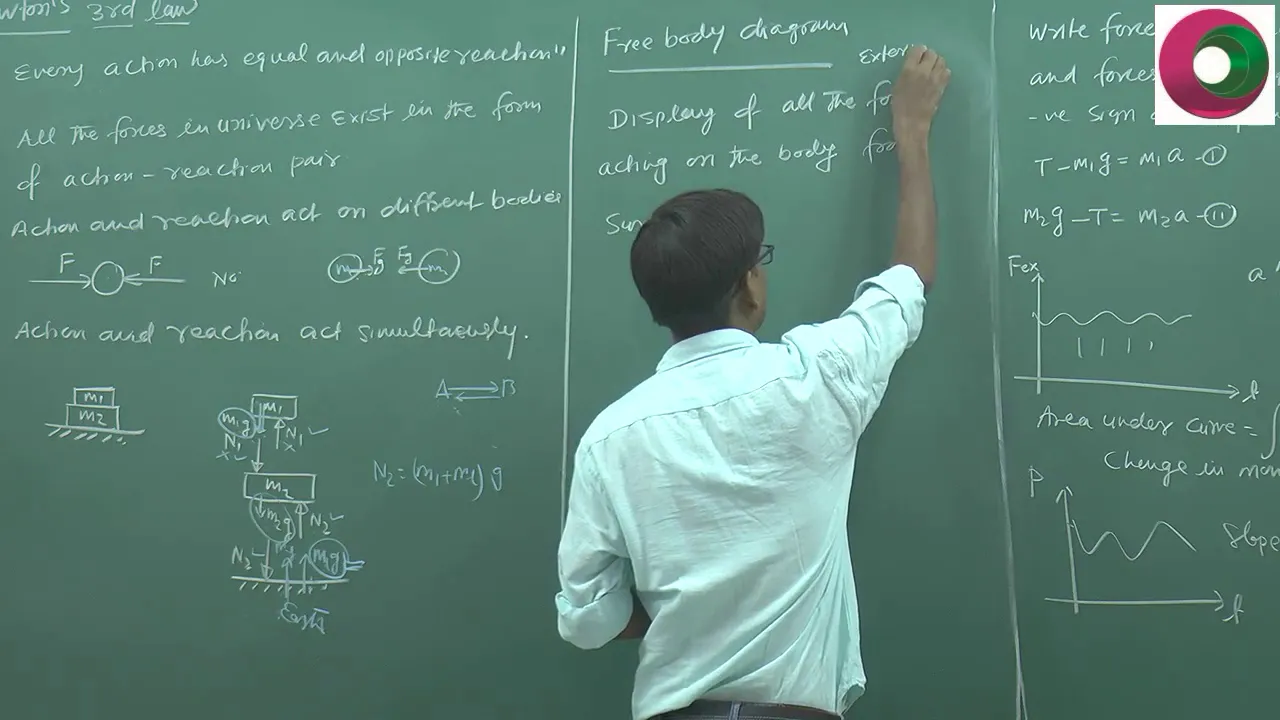 3rd law
Every action has equal and opposite reaction"
All the forces in universe exist in the form
of action-reaction pair
Action and reaction act on different bodies
F F No.
m1 Fg Fg m2
Action and reaction act simultaeously.
m1
m2
A B
m1
m1g
N1
N1
m2
m2g
N2
N2 = (m1+m2) g
N2
m1g
Earth
Free body diagram
Display of all the
acting on the body
Write
and forces
-ve sign
T - m1g = m1a - I
m2g - T = m2a - II
Fex
a
t
Area under curve = ∫
Change in
P
Slope
t